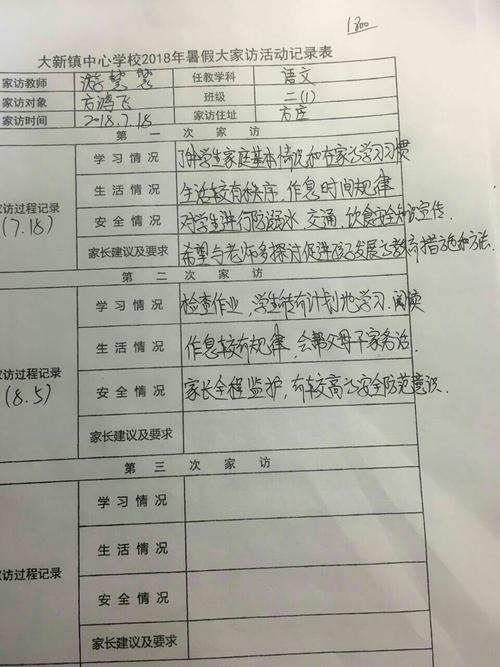 1300
大新镇中心学校2018年暑假大家访活动记录表
家访教师 游慧慧 任教学科 语文
家访对象 方鸿飞 班级 二(1)
家访时间 2018.7.18 家访住址 方庄
第 一 次 家 访
家访过程记录 (7.18)
学 习 情 况 了解学生家庭基本情况和在家之学习习惯
生 活 情 况 生活较有秩序,作息时间规律
安 全 情 况 对学生进行防溺水、交通、饮食安全知识宣传.
家长建议及要求 希望与老师多探讨促进孩子发展之教育措施和方法.
第 二 次 家 访
家访过程记录 (8.5)
学 习 情 况 检查作业,学生能有计划地学习、阅读
生 活 情 况 作息较有规律,会帮父母干家务活.
安 全 情 况 家长全程监护,有较高之安全防范意识.
家长建议及要求
第 三 次 家 访
家访过程记录
学 习 情 况
生 活 情 况
安 全 情 况
家长建议及要求